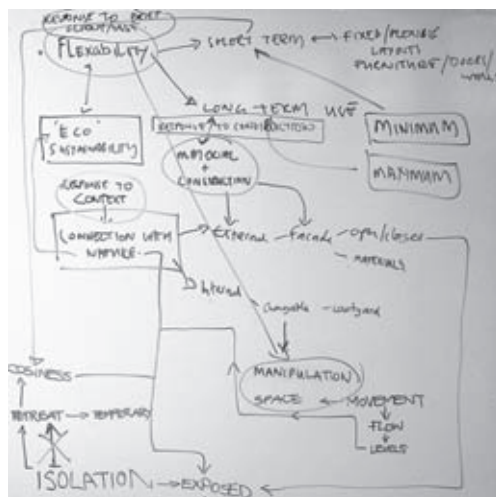 RESPONSE TO BRIEF
FLEXABILITY
SHORT TERM
FIXED/
LAYOUTS
FURNITURE/DOORS/
LONG-TERM USE
MINIMUM
'ECO'
SUSTAINABILITY
RESPONSE TO
MATERIAL
+
CONSTRUCTION
MAXIMUM
RESPONSE TO
CONTEXT
CONNECTION WITH
NATURE
External
Facade
open/closed
MATERIALS
Internal
Changeable
courtyard
MANIPULATION
SPACE
MOVEMENT
FLOW
LEVELS
COSINESS
RETREAT
TEMPORARY
ISOLATION
EXPOSED